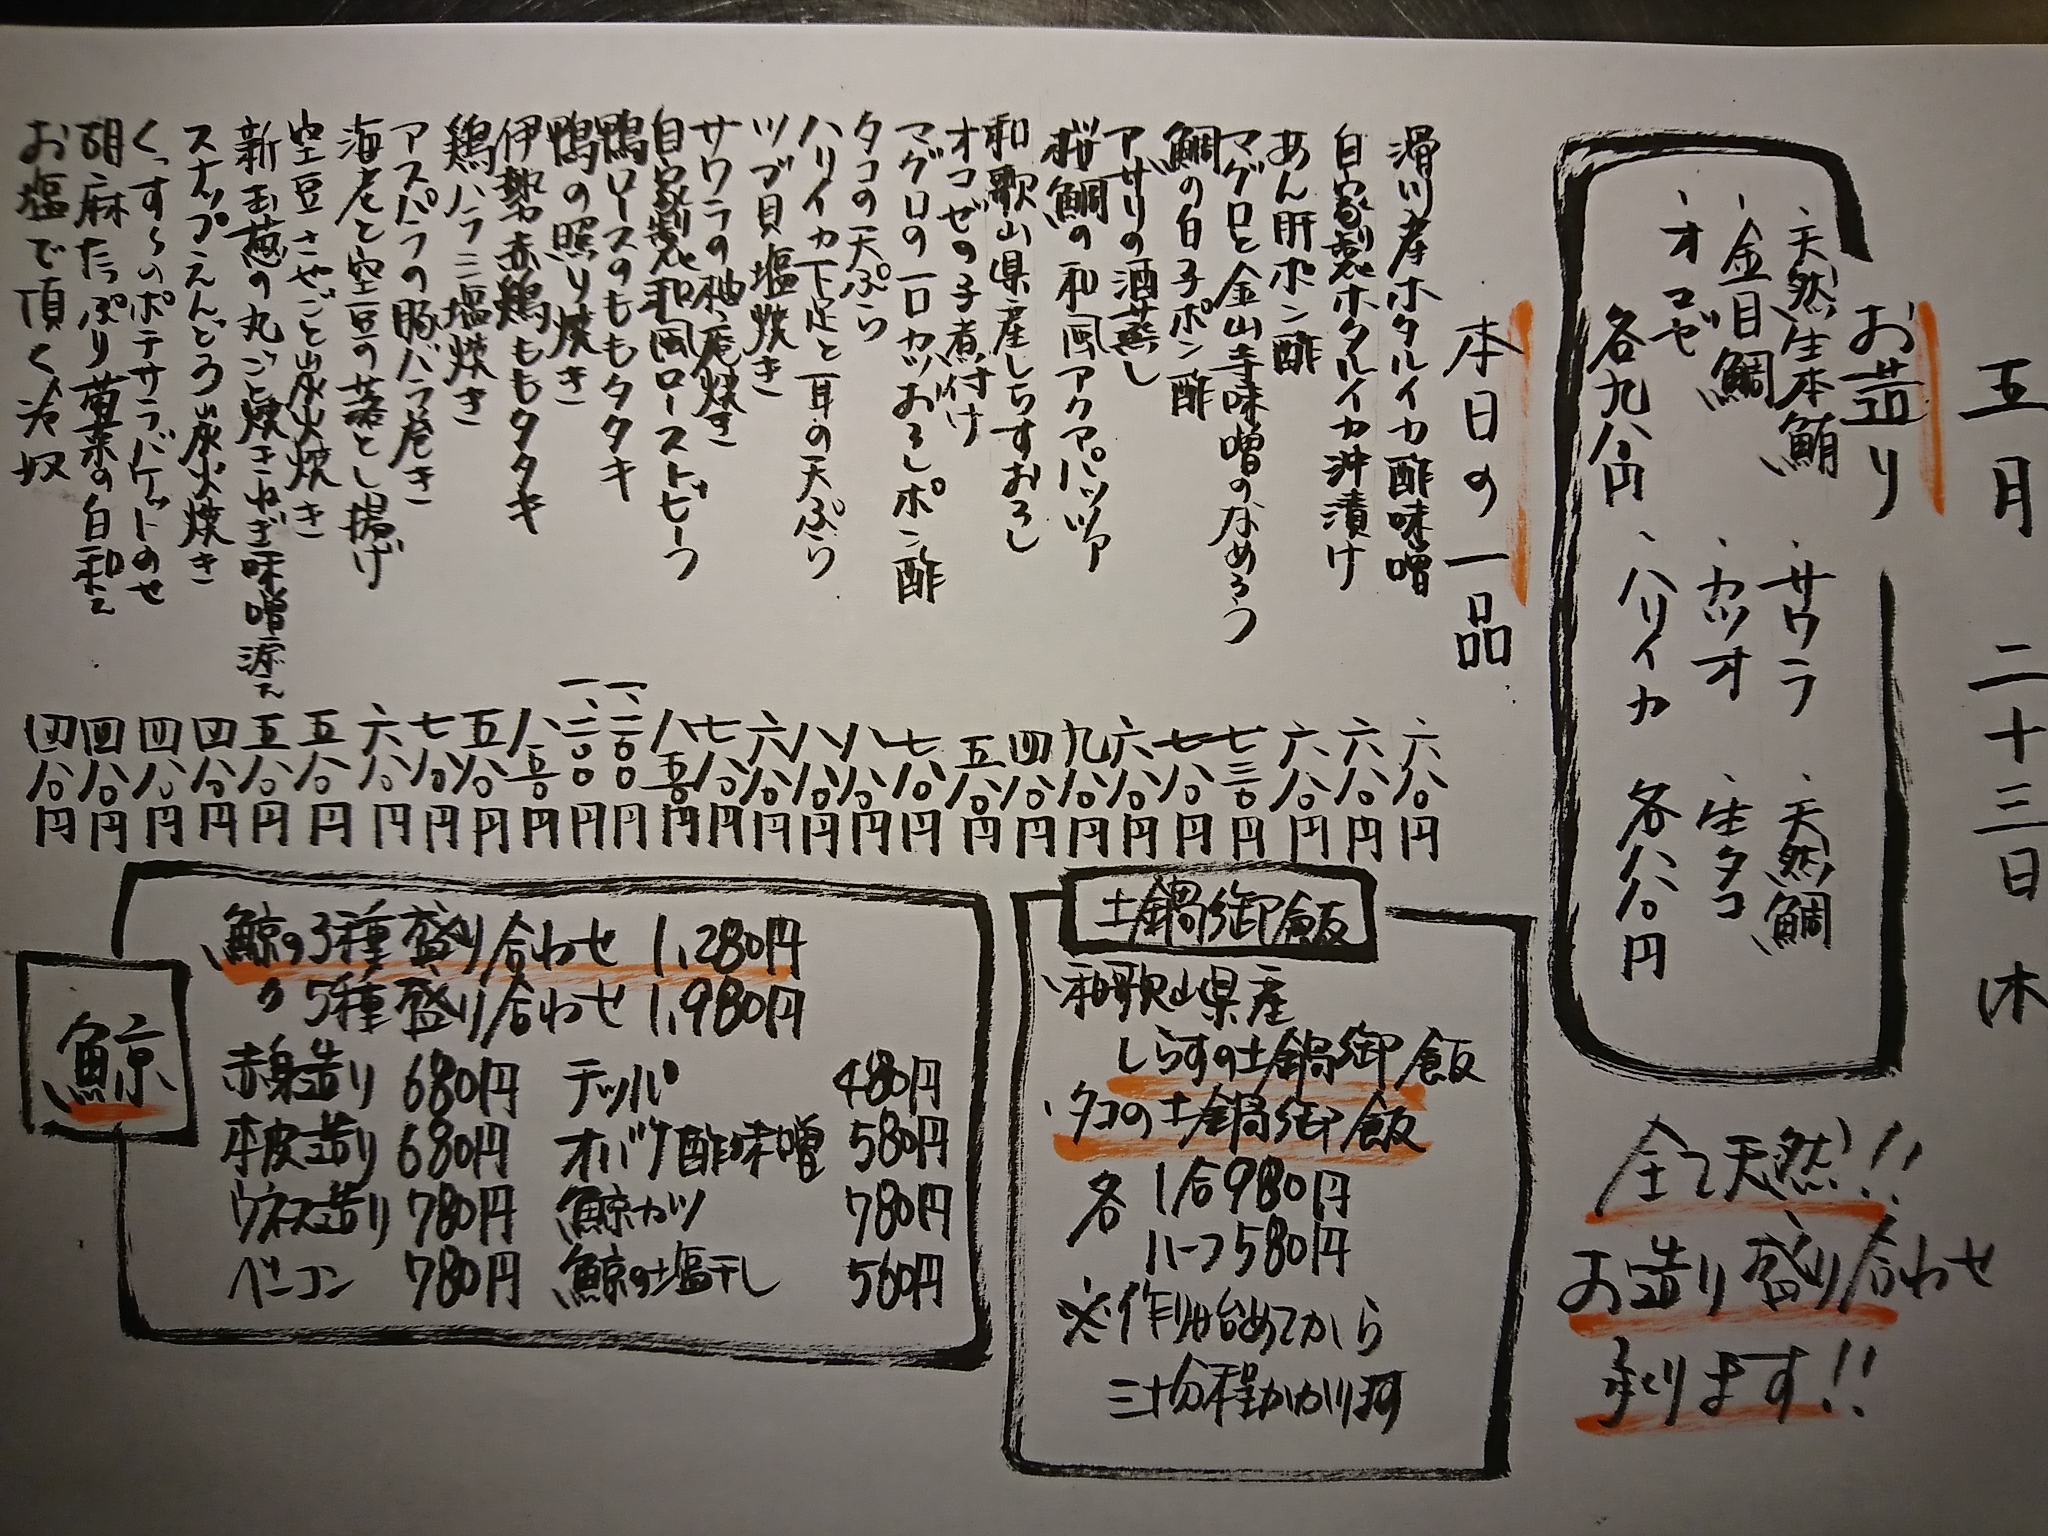 五月 二十三日
お造り
・天然生本鮪 ・サワラ ・天然鯛
・金目鯛 ・カツオ ・生タコ
・オコゼ ・ハリイカ
各九八〇円 各八八〇円
全て天然!!
お造り盛り合わせ
承ります!!
本日の一品
滑川産ホタルイカ酢味噌 六八〇円
自家製ホタルイカ沖漬け 六八〇円
あん肝ポン酢 六八〇円
マグロと金山寺味噌のなめろう 七三〇円
鯛の白子ポン酢 七八〇円
アサリの酒蒸し 六八〇円
桜鯛の和風アクアパッツァ 九八〇円
和歌山県産しらすおろし 四八〇円
オコゼの子煮付け 五八〇円
マグロの一口カツおろしポン酢 七八〇円
タコの天ぷら 八八〇円
ハリイカ下足と耳の天ぷら 八八〇円
ツブ貝塩焼き 六八〇円
サワラの柚庵焼き 七八〇円
自家製和風ローストビーフ 八五〇円
鴨ロースのももタタキ 一、二〇〇円
鴨の照り焼き 一、二〇〇円
伊勢赤鶏ももタタキ 八五〇円
鶏ハラミ塩焼き 五八〇円
アスパラの豚バラ巻き 七八〇円
海老と空豆の落とし揚げ 六八〇円
空豆さやごと炭火焼き 五八〇円
新玉葱の丸ごと焼きねぎ味噌添え 五八〇円
スナップえんどう炭火焼き 四八〇円
ポテサラバケットのせ 四八〇円
胡麻たっぷり菊菜の白和え 四八〇円
お塩で頂く冷奴 四八〇円
土鍋御飯
・和歌山県産
しらすの土鍋御飯
・タコの土鍋御飯
各 1合980円
ハーフ580円
※作り始めてから
三十分程かかります
鯨
鯨の3種盛り合わせ 1,280円
〃 5種盛り合わせ 1,980円
赤身造り 680円 テッパ 480円
本皮造り 680円 オバケ酢味噌 580円
ウネス造り 780円 鯨カツ 780円
ベーコン 780円 鯨の塩干し 560円